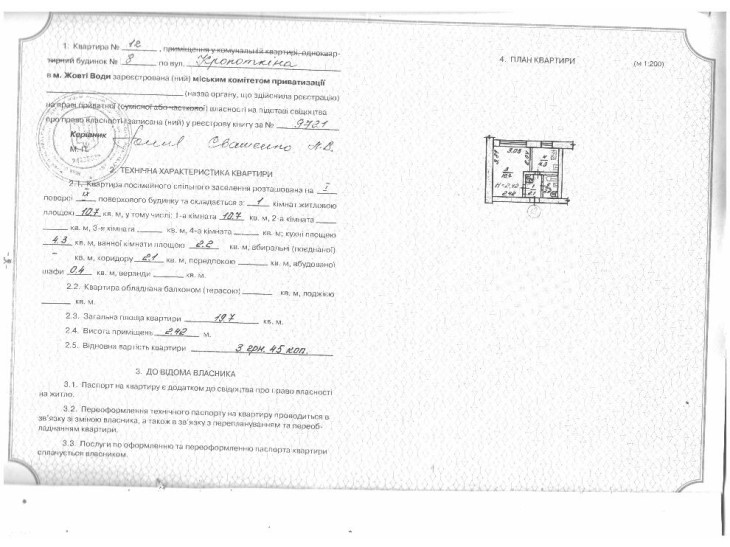 1. Квартира № 12, приміщення у комунальній квартирі, одноквар-
тирний будинок № 8 по вул. Кропоткіна
в м. Жовті Води зареєстрована (ний) міським комітетом приватизації
(назва органу, що здійснила реєстрацію)
на праві приватної (сумісної або часткової) власності на підставі свідоцтва
про право власності і записана (ний) у реєстрову книгу за № 9721
Керівник
М. П.
2. ТЕХНІЧНА ХАРАКТЕРИСТИКА КВАРТИРИ
2.1. Квартира посімейного спільного заселення розташована на I
поверсі поверхового будинку та складається з: 1 кімнат житловою
площою 10.7 кв. м, у тому числі: 1-а кімната 10.7 кв. м, 2-а кімната
кв. м, 3-я кімната кв. м, 4-а кімната кв. м; кухні площою
4.3 кв. м, ванної кімнати площою 2.2 кв. м, вбиральні (поєднаної)
– кв. м, коридору 2.1 кв. м, передпокою кв. м, вбудованої
шафи 0.4 кв. м, веранди кв. м.
2.2. Квартира обладнана балконом (терасою) кв. м, лоджією
кв. м.
2.3. Загальна площа квартири 19.7 кв. м.
2.4. Висота приміщень 2.42 м.
2.5. Відновна вартість квартири 3 грн. 45 коп.
3. ДО ВІДОМА ВЛАСНИКА
3.1. Паспорт на квартиру є додатком до свідоцтва про право власності
на житло.
3.2. Переоформлення технічного паспорту на квартиру проводиться в
зв'язку зі зміною власника, а також в зв'язку з переплануванням та переоб-
ладнанням квартири.
3.3 Послуги по оформленню та переоформленню паспорта квартири
сплачується власником.
4. ПЛАН КВАРТИРИ (м 1:200)